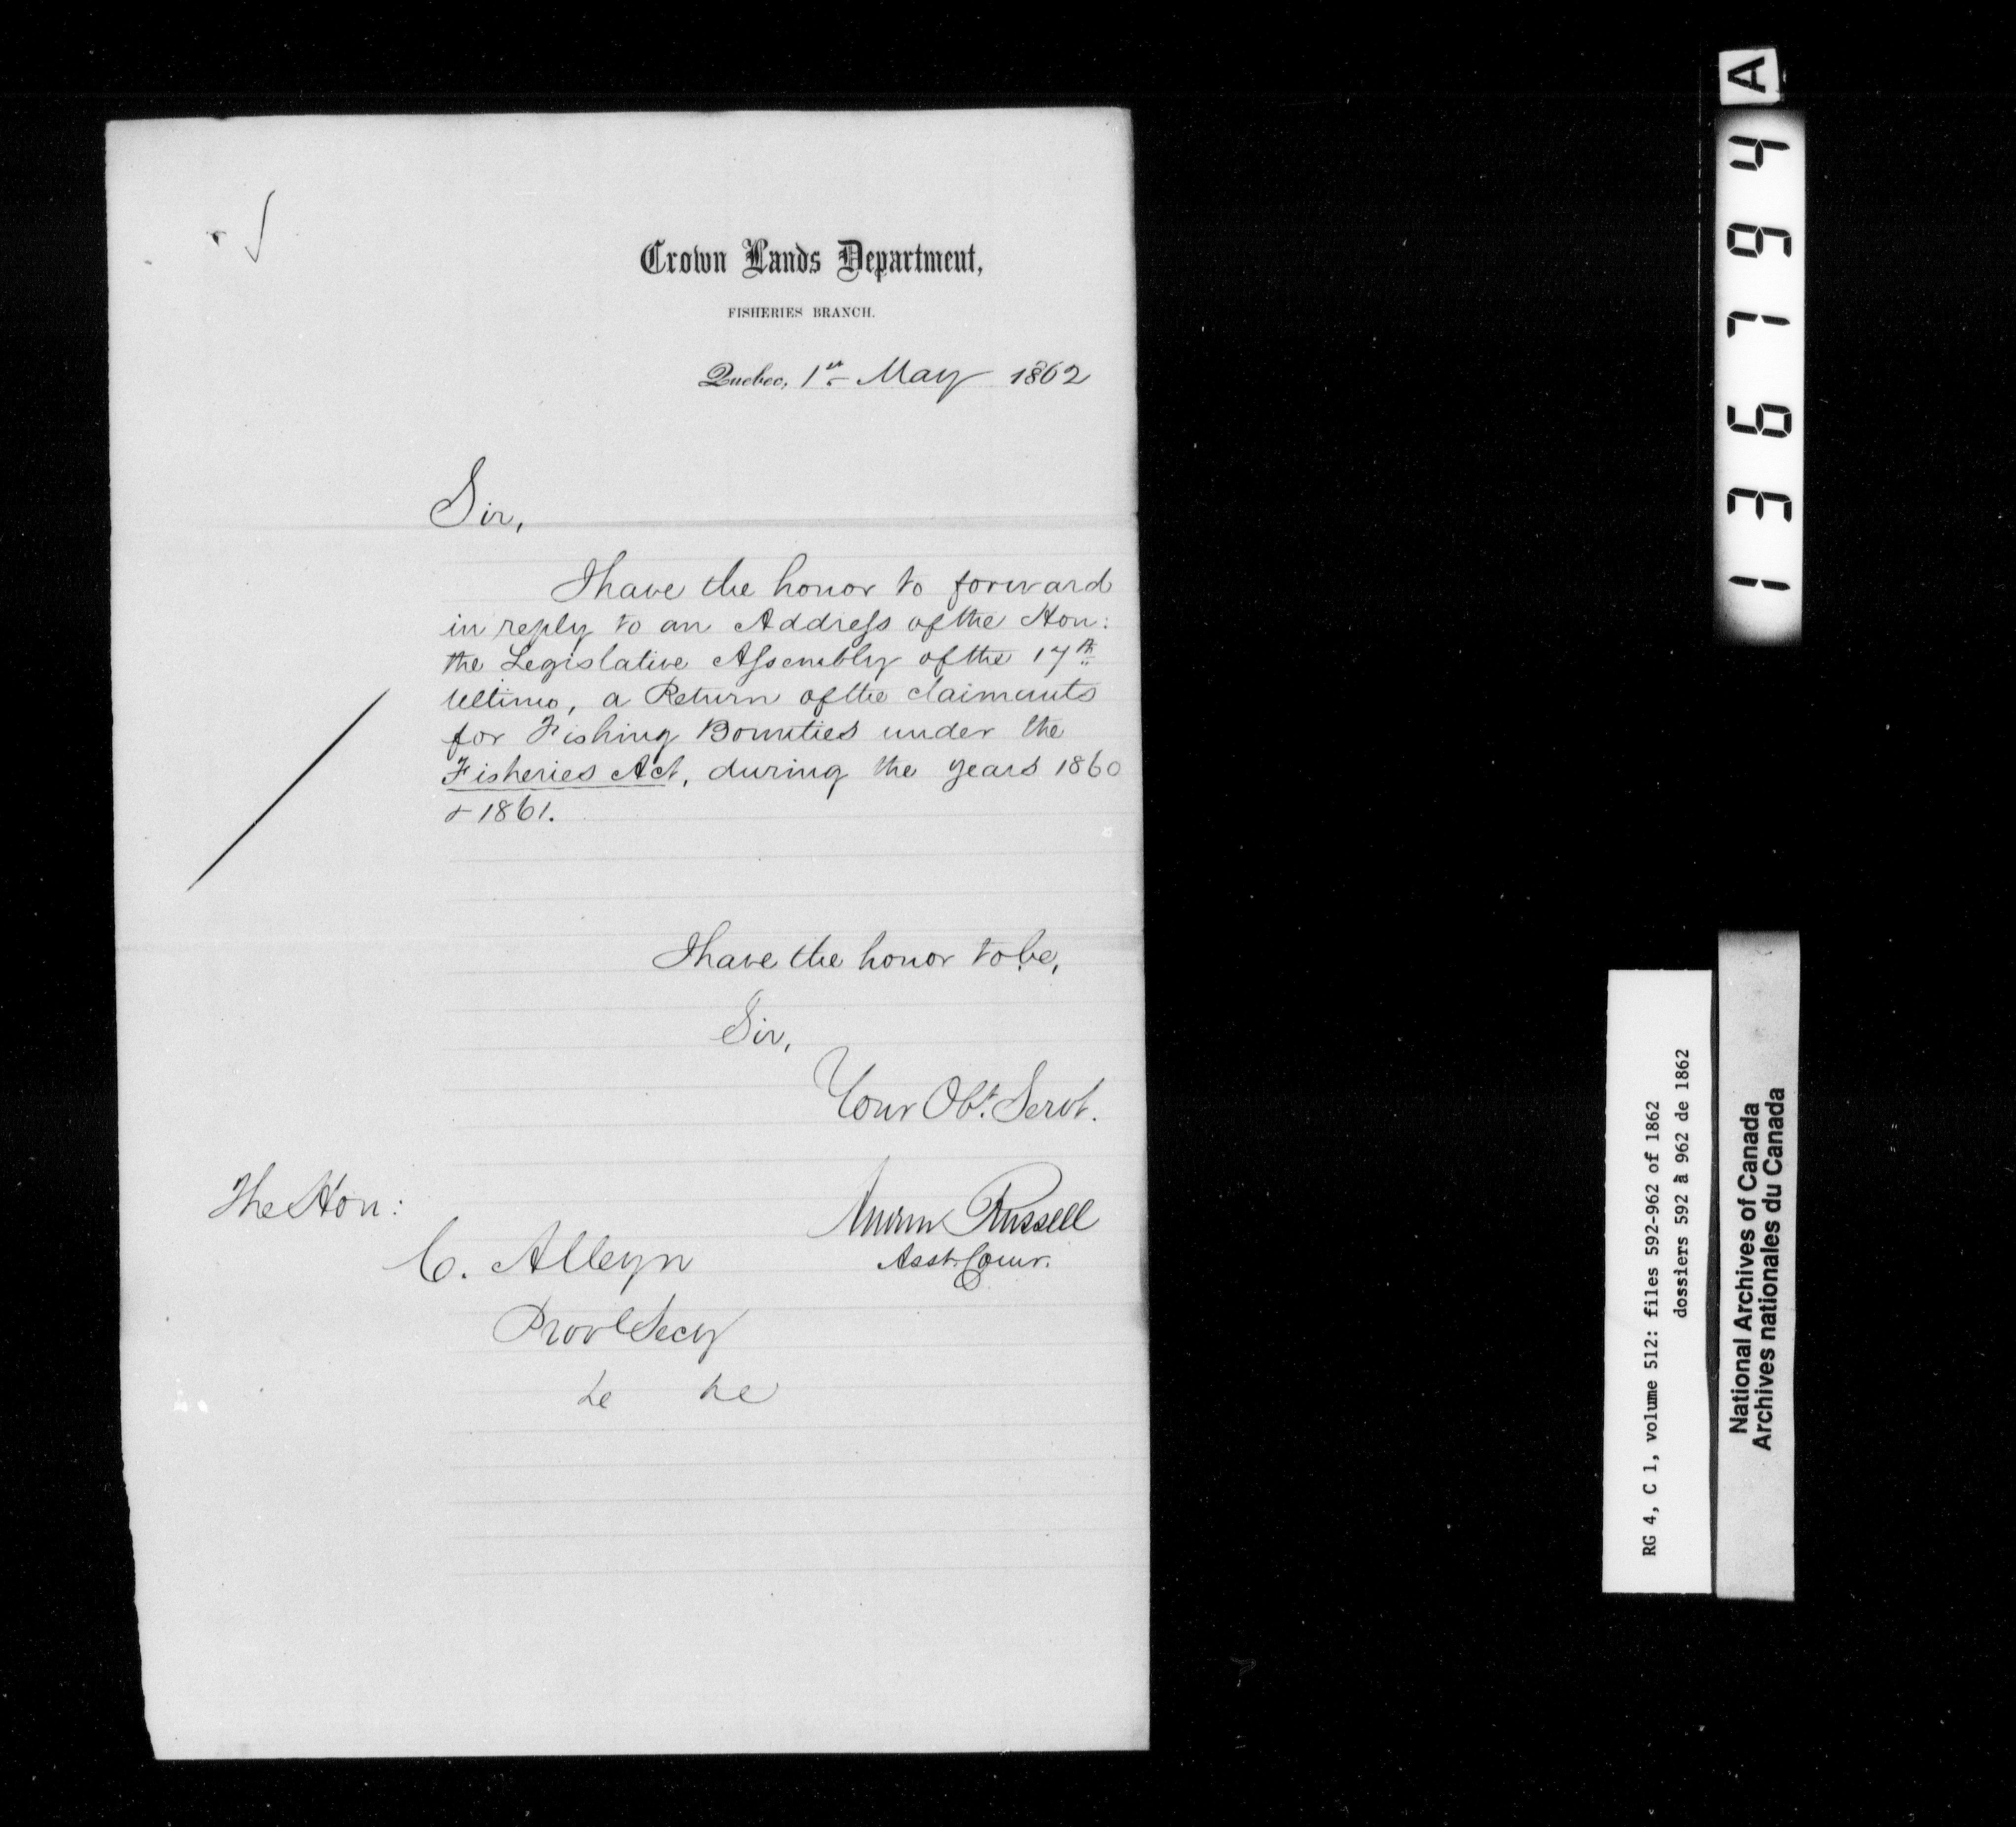 Crown Lands Department,
FISHERIES BRANCH.
Quebec, 1st May 1862
Sir,
I have the honor to forward
in reply to an Address of the Hon:
the Legislative Assembly of the 17th
Ultimo, a Return of the claimants
for Fishing Bounties under the
Fisheries Act, during the years 1860
& 1861.
I have the honor to be,
Sir,
Your Obt. Servt.
Andrew Russell
Asst. Comr.
The Hon:
C. Alleyn
Provl Secy
&c &c
136794
A
RG 4, C 1, volume 512: files 592-962 of 1862
dossiers 592 à 962 de 1862
National Archives of Canada
Archives nationales du Canada